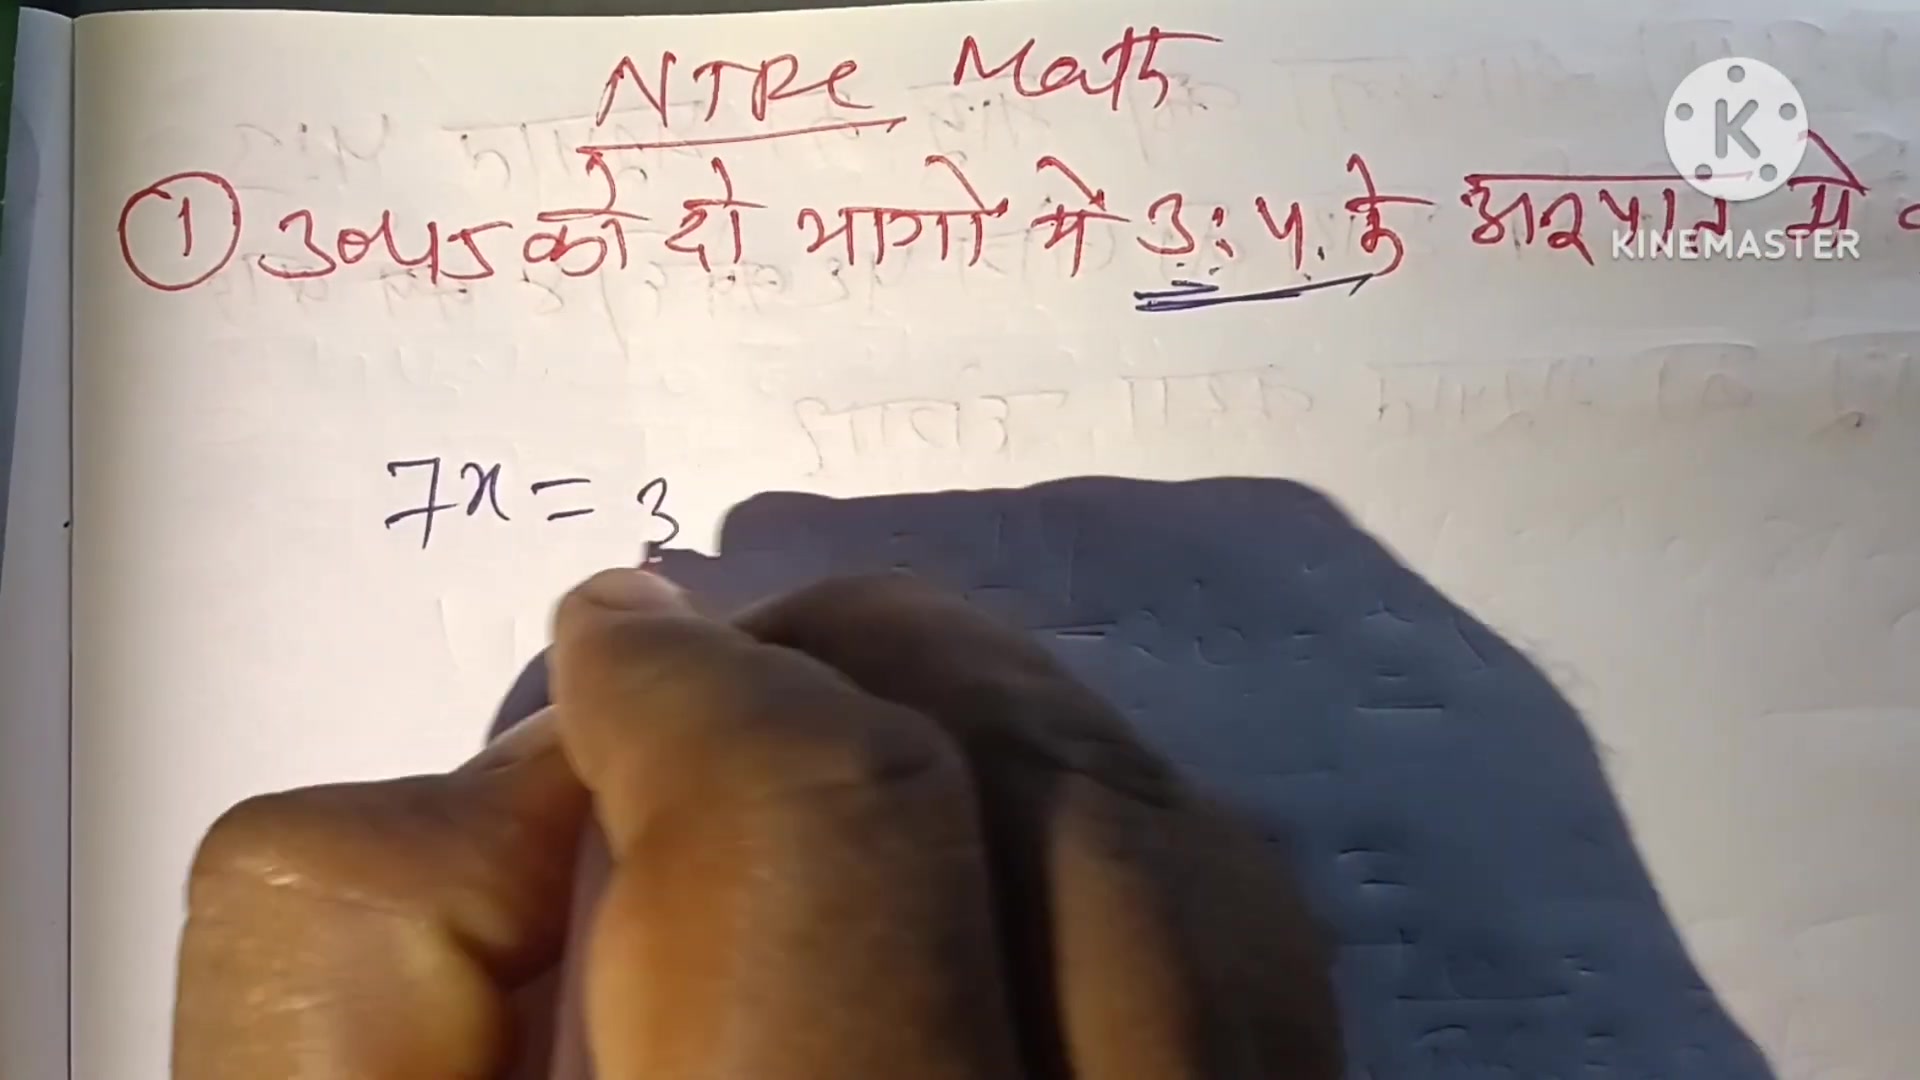 NTPC Math
① 3045 को दो भागो मे 3:4 के अनुपात मे
7x = 3
K
KINEMASTER